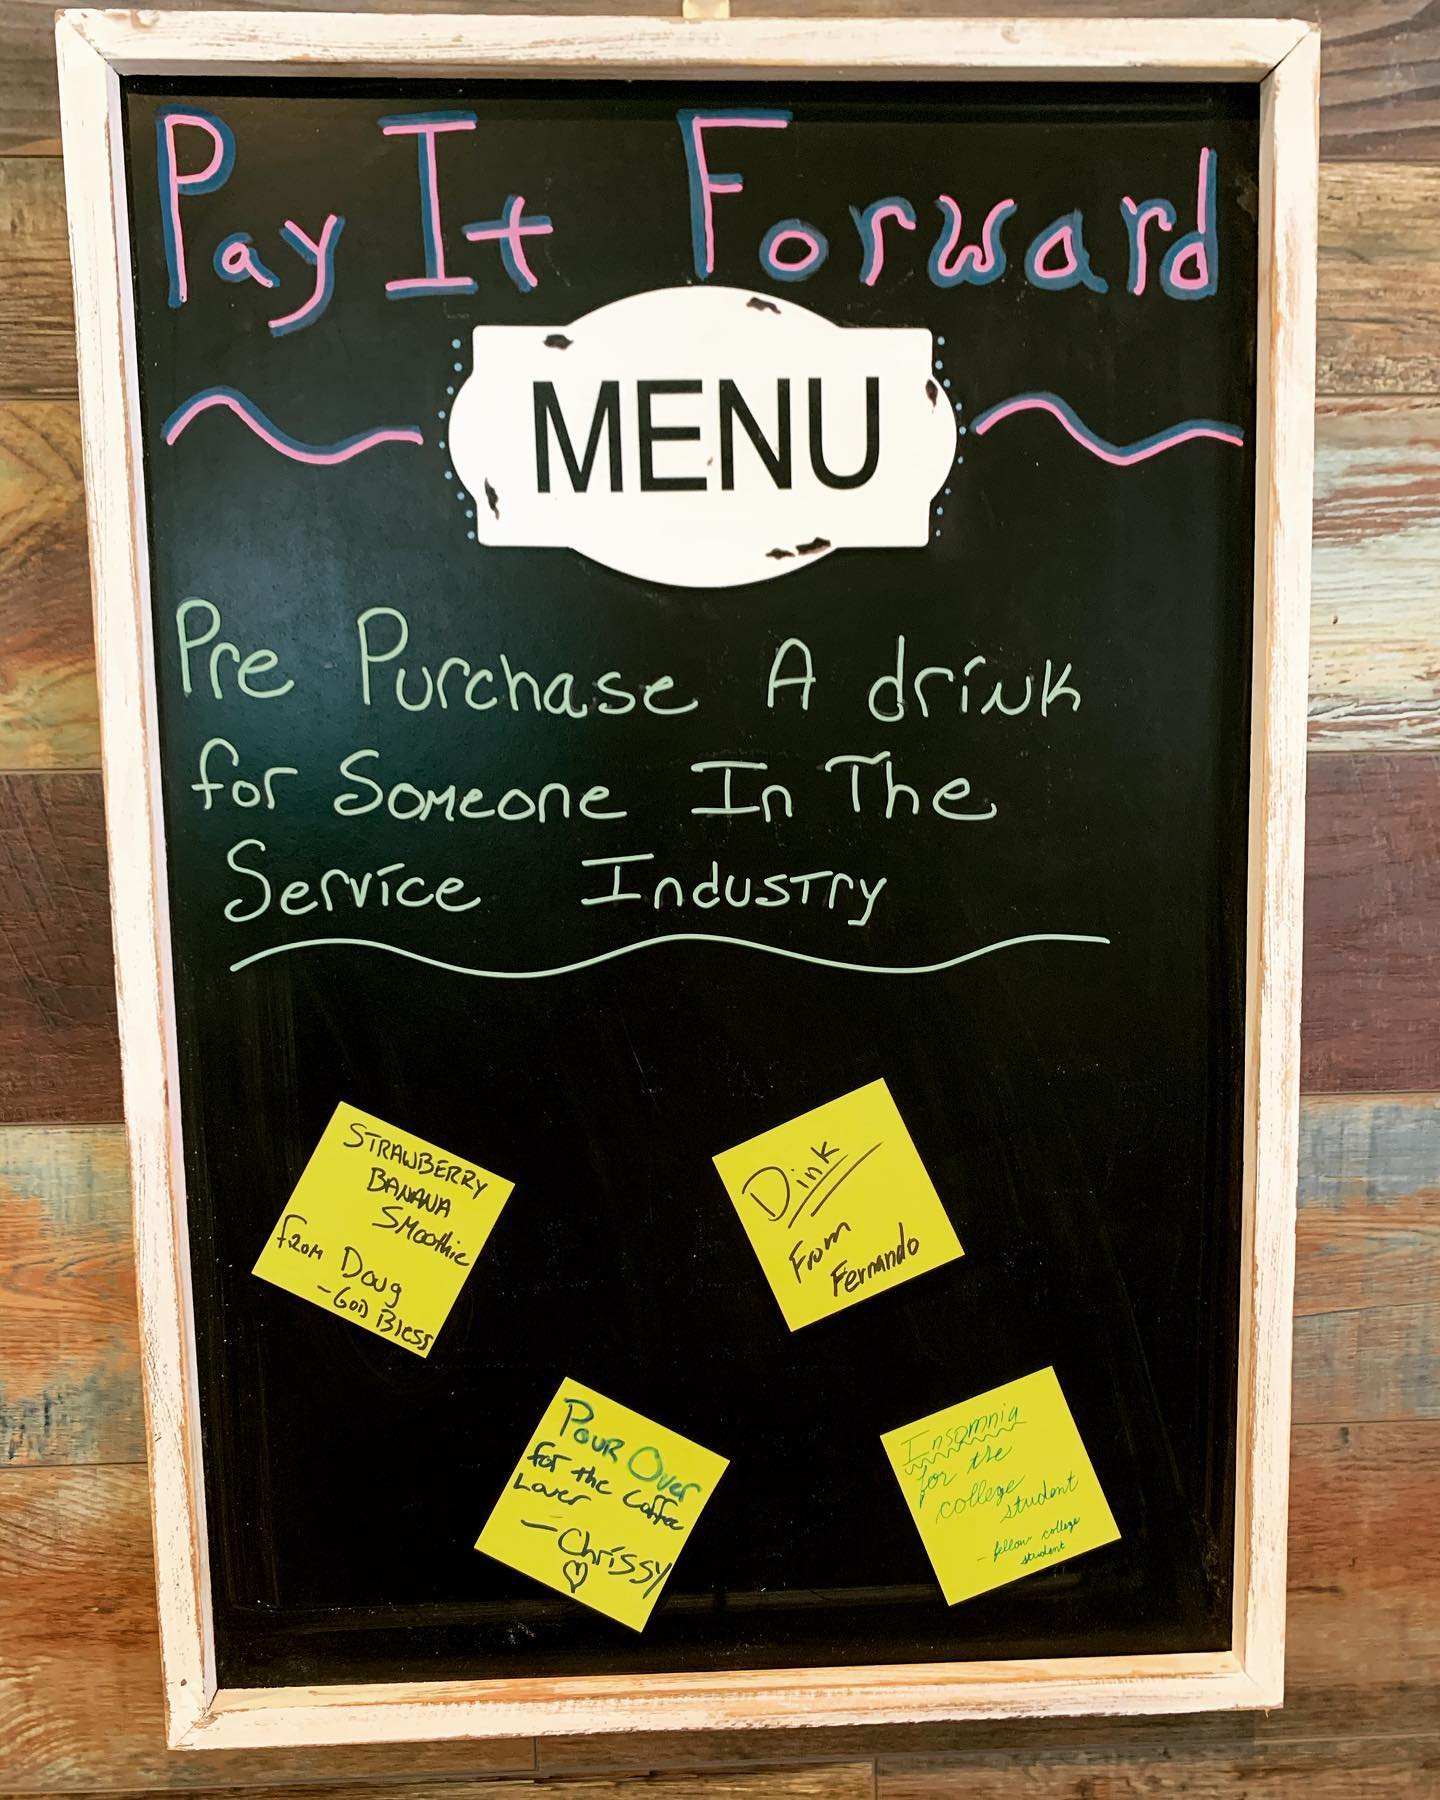 Pay It Forward
MENU
Pre Purchase A drink
for Someone In The
Service Industry
STRAWBERRY
BANANA
SMoothie
from Doug
-GOD Bless
Dink
From
Fernando
Pour Over
for the Coffee
Lover
- Chrissy
Insomnia
for the
college
student
- fellow college
student